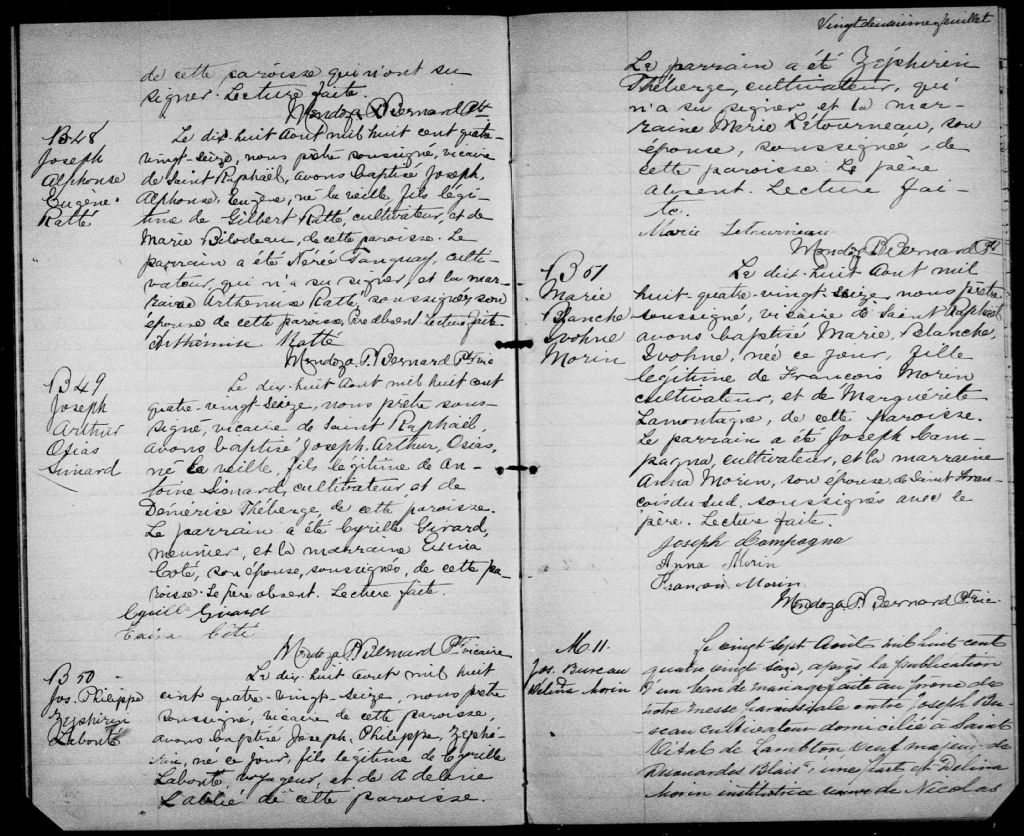 de cette paroisse qui n'ont su
signer. Lecture faite.
Mendoza P. Bernard Ptr
B 48
Joseph
Alphonse
Eugène
Ratté
Le dix-huit Aout mil huit cent quatre
vingt-seize, nous prêtre soussigné, vicaire
de Saint Raphaël, avons baptisé Joseph,
Alphonse, Eugène, né la veille, fils légi-
time de Gilbert Ratté, cultivateur, et de
Marie Bilodeau, de cette paroisse. Le
parrain a été Nérée Tanguay, culti-
vateur, qui n'a su signer, et la mar-
raine Arthémise Ratté, soussignée, son
épouse de cette paroisse. Père absent. Lecture faite.
Arthémise Ratté
Mendoza P. Bernard Ptr Vic
B 49
Joseph
Arthur
Osias
Simard
Le dix-huit Aout mil huit cent
quatre-vingt seize, nous prêtre sous-
signé, vicaire de Saint Raphaël,
avons baptisé Joseph, Arthur, Osias,
né la veille, fils légitime de An-
toine Simard, cultivateur, et de
Démérise Théberge, de cette paroisse.
Le parrain a été Cyrille Girard,
meunier, et la marraine Exina
Coté, son épouse, soussignés, de cette pa-
roisse. Le père absent. Lecture faite.
Cyrille Girard
Exina Côté
Mendoza P. Bernard Ptr vicaire
B 50
Jos. Philippe
Zéphirin
Labonté
Le dix-huit Aout mil huit
cent quatre-vingt-seize, nous prêtre
soussigné, vicaire de cette paroisse,
avons baptisé Joseph, Philippe, Zéphi-
rin, né ce jour, fils légitime de Cyrille
Labonté voyageur, et de Adeline
Lablié de cette paroisse.
Vingt deuxième feuillet
Le parrain a été Zéphirin
Théberge, cultivateur, qui
n'a su signer et la mar-
raine Marie Létourneau, son
épouse, soussignée, de
cette paroisse. Le père
absent. Lecture fai-
te.
Marie Letourneau
Mendoza P. Bernard Ptr
B 51
Marie
Blanche
Ivohne
Morin
Le dix-huit Aout mil
huit-quatre-vingt-seize, nous prêtre
soussigné, vicaire de Saint Raphaël,
avons baptisé Marie, Blanche,
Ivohne, née ce jour, fille
légitime de François Morin
cultivateur, et de Marguérite
Lamontagne, de cette paroisse.
Le parrain a été Joseph Cam-
pagna, cultivateur, et la marraine
Anna Morin, son épouse, de Saint Fran-
cois du Sud, soussignés avec le
père. Lecture faite.
Joseph Campagna
Anna Morin
François Morin
Mendoza P. Bernard Ptr vic
M 11.
Jos. Bureau
Délina Morin
Le vingt sept Août mil huit cent
quatre vingt seize, après la publication
d'un ban de mariage faite au prône de
notre messe paroissiale entre Joseph Bu-
reau cultivateur domicilié à Saint
Vital de Lambton veuf majeur de
Desanardes Blais d'une part et Délina
Morin institutrice de Nicolas